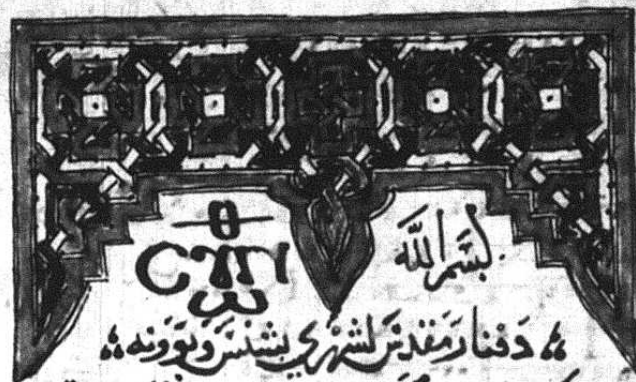 بسم الله
دفنار مقدس لشهري بشنس وبوونه